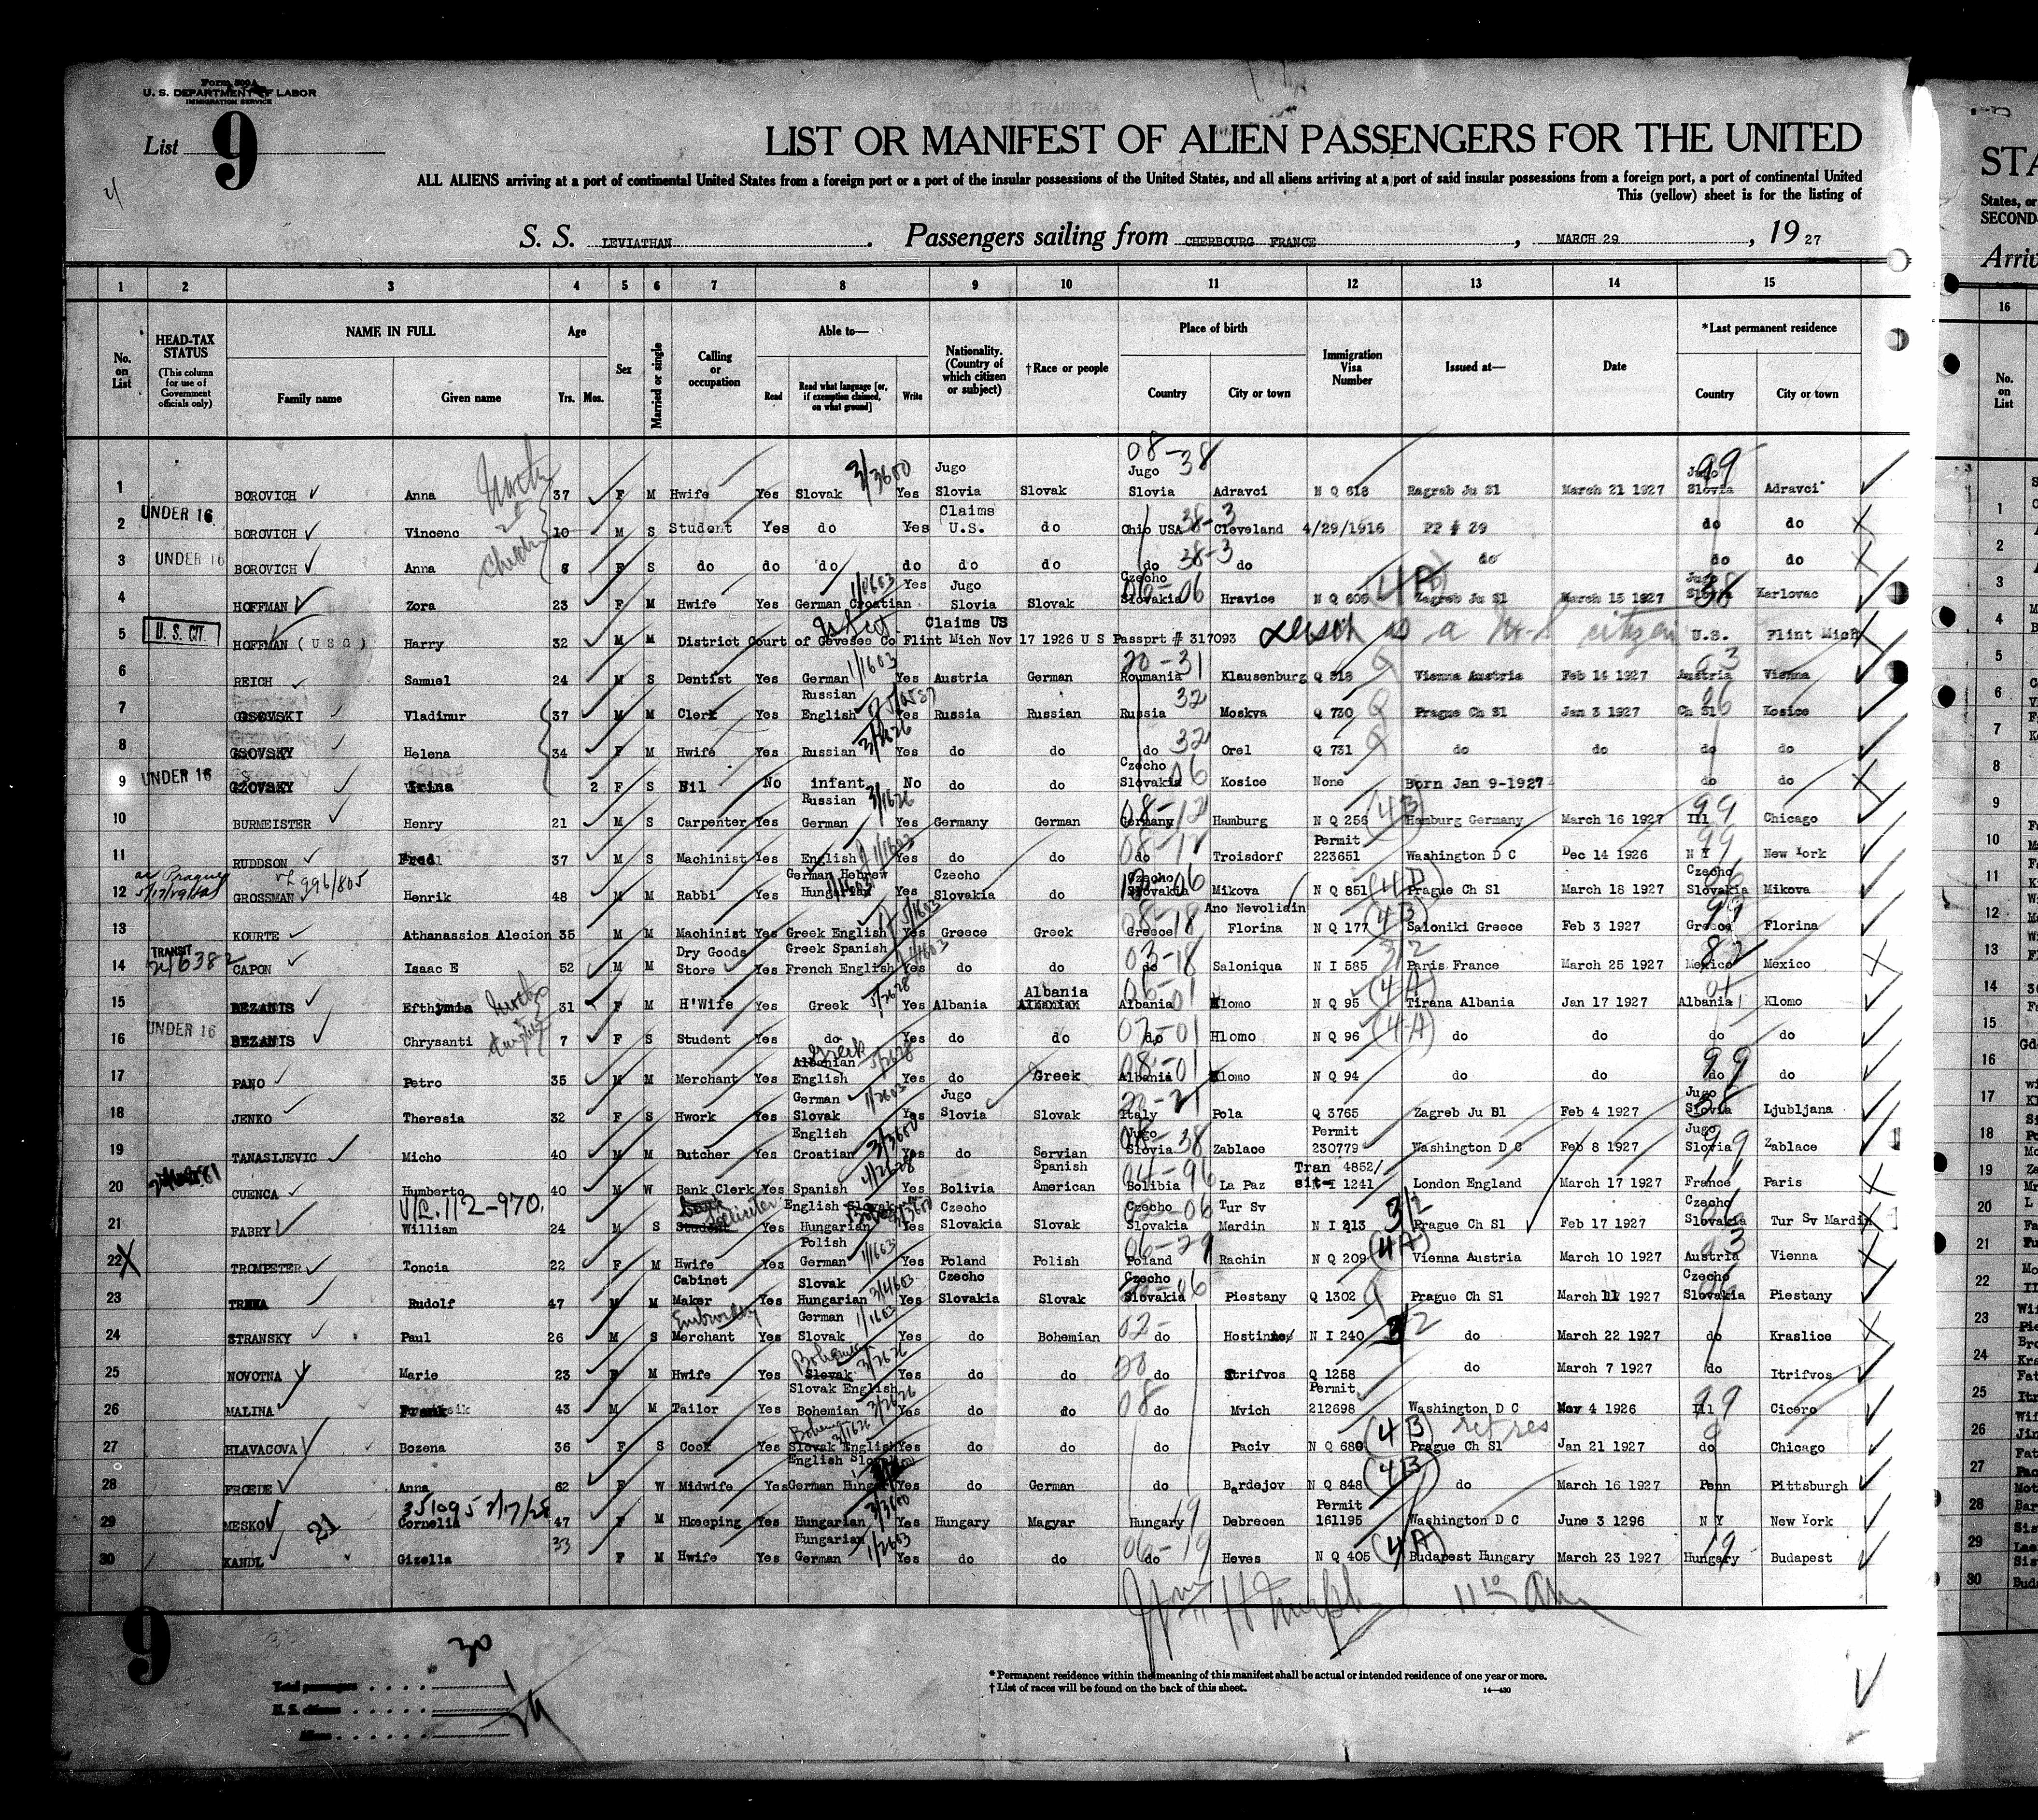 Form 500A
U. S. DEPARTMENT OF LABOR
IMMIGRATION SERVICE
List 9
LIST OR MANIFEST OF ALIEN PASSENGERS FOR THE UNITED
STA
ALL ALIENS arriving at a port of continental United States from a foreign port or a port of the insular possessions of the United States, and all aliens arriving at a port of said insular possessions from a foreign port, a port of continental United
States, or
This (yellow) sheet is for the listing of
SECOND-
S. S. LEVIATHAN. Passengers sailing from CHERBOURG FRANCE, MARCH 29, 1927
Arriv
1 2 3 4 5 6 7 8 9 10 11 12 13 14 15 16
No. on List HEAD-TAX STATUS (This column for use of Government officials only) NAME IN FULL Family name Given name Age Yrs. Mos. Sex Married or single Calling or occupation Able to— Read Read what language [or, if exemption claimed, on what ground] Write Nationality. (Country of which citizen or subject) †Race or people Place of birth Country City or town Immigration Visa Number Issued at— Date *Last permanent residence Country City or town No. on List
1 BOROVICH Anna 37 F M Hwife Yes Slovak 3/3600 Yes Jugo Slovia Slovak 08-38 Jugo Slovia Adravci N Q 618 Zagreb Ju Sl March 21 1927 Jugo Slovia 99 Adravci
2 UNDER 16 BOROVICH Vincenc 10 M S Student Yes do Yes Claims U.S. do Ohio USA 38-3 Cleveland 4/29/1916 PP # 29 do do
3 UNDER 16 BOROVICH Anna 8 F S do do do do do do do 38-3 do do do do
4 HOFFMAN Zora 23 F M Hwife Yes German Croatian 1/1603 Yes Jugo Slovia Slovak Czecho Slovakia 06-06 Hravice N Q 605 Zagreb Ju Sl March 15 1927 Jugo Slovia 38 Karlovac
5 U. S. CIT. HOFFMAN (USC) Harry 32 M M District Court of Gevesee Co Flint Mich Nov 17 1926 U S Passprt # 317093 Claims US as a U.S citizen U.S. Flint Mich
6 REICH Samuel 24 M S Dentist Yes German 1/1603 Yes Austria German 20-31 Roumania Klausenburg Q 318 Vienna Austria Feb 14 1927 Austria 03 Vienna
7 GSOVSKI Vladimur 37 M M Clerk Yes Russian English Yes Russia Russian Russia 32 Moskva Q 730 Prague Ch Sl Jan 3 1927 Ch Sl 06 Kosice
8 GSOVSKY Helena 34 F M Hwife Yes Russian 3/2626 Yes do do do 32 Orel Q 731 do do do do
9 UNDER 16 GZOVSKY Irina 2 F S Nil No infant No do do Czecho Slovakia 06 Kosice None Born Jan 9-1927 do do
10 BURMEISTER Henry 21 M S Carpenter Yes Russian German 3/1626 Yes Germany German 08-12 Germany Hamburg N Q 256 (4B) Hamburg Germany March 16 1927 Ill 99 Chicago
11 RUDDSON Fred 37 M S Machinist Yes English 1/1603 Yes do do 08-12 do Troisdorf Permit 223651 Washington D C Dec 14 1926 N Y 99 New York
12 996/805 GROSSMAN Henrik 48 M M Rabbi Yes German Hebrew Hungarian 1/1603 Yes Czecho Slovakia do Czecho Slovakia 06 Mikova N Q 851 (4D) Prague Ch Sl March 18 1927 Czecho Slovakia Mikova
13 KOURTE Athanassios Alecion 35 M M Machinist Yes Greek English Yes Greece Greek 08-18 Greece Ano Nevoliain Florina N Q 177 (4B) Saloniki Greece Feb 3 1927 Greece 99 Florina
14 TRANSIT CAPON Isaac E 52 M M Dry Goods Store Yes Greek Spanish French English Yes do do 03-18 do Saloniqua N I 585 3/2 Paris France March 25 1927 Mexico 82 Mexico
15 BEZANIS Efthymia 31 F M H'Wife Yes Greek 3/2628 Yes Albania Albania 06-01 Albania Hlomo N Q 95 (4A) Tirana Albania Jan 17 1927 Albania 01 Klomo
16 UNDER 16 BEZANIS Chrysanti 7 F S Student Yes do Yes do do 07-01 do Hlomo N Q 96 (4A) do do do do
17 PANO Petro 35 M M Merchant Yes Albanian Greek English Yes do Greek 08-01 Albania Hlomo N Q 94 do do 99 do do
18 JENKO Theresia 32 F S Hwork Yes German Slovak 1/2603 Yes Jugo Slovia Slovak 20-21 Italy Pola Q 3765 Zagreb Ju Sl Feb 4 1927 Jugo Slovia 38 Ljubljana
19 TANASIJEVIC Micho 40 M M Butcher Yes English Croatian 3/3600 Yes do Servian Jugo Slovia 08-38 Zablace Permit 230779 Washington D C Feb 8 1927 Jugo Slovia 99 Zablace
20 CUENCA Humberto 40 M W Bank Clerk Yes Spanish 1/2628 Yes Bolivia Spanish American 04-96 Bolibia La Paz Tran 4852/ sit I 1241 London England March 17 1927 France Paris
21 FABRY V/L.112-970. William 24 M S Student Yes English Slovak Hungarian Yes Czecho Slovakia Slovak Czecho Slovakia 02-06 Tur Sv Mardin N I 213 3/2 Prague Ch Sl Feb 17 1927 Czecho Slovakia 06 Tur Sv Mardin
22 TROMPETER Toncia 22 F M Hwife Yes Polish German 1/1603 Yes Poland Polish 06-29 Poland Rachin N Q 209 (4A) Vienna Austria March 10 1927 Austria 03 Vienna
23 TRNKA Rudolf 47 M M Cabinet Maker Yes Slovak Hungarian Yes Czecho Slovakia Slovak Czecho Slovakia 06 Piestany Q 1302 Prague Ch Sl March 11 1927 Czecho Slovakia 06 Piestany
24 STRANSKY Paul 26 M S Embroidery Merchant Yes German Slovak 1/1603 Yes do Bohemian 02- do Hostinne N I 240 3/2 do March 22 1927 do Kraslice
25 NOVOTNA Marie 23 F M Hwife Yes Bohemian Slovak 3/2626 Yes do do 20 do Itrifvos Q 1258 do March 7 1927 do Itrifvos
26 MALINA 43 M M Tailor Yes Slovak English Bohemian 3/2626 Yes do do 08 do Mvich Permit 212698 Washington D C Nov 4 1926 Ill 99 Cicero
27 HLAVACOVA Bozena 36 F S Cook Yes Bohemian Slovak English Yes do do do Paciv N Q 680 (4B) Prague Ch Sl ret res Jan 21 1927 do Chicago
28 FROEDE Anna 62 F W Midwife Yes English Slovak German Hung Yes do German do Bardejov N Q 848 (4B) do March 16 1927 Penn Pittsburgh
29 MESKO Cornelia 47 F M Hkeeping Yes Hungarian 3/3600 Yes Hungary Magyar Hungary 19 Debrecen Permit 161195 Washington D C June 3 1296 N Y New York
30 KANDL 21 Gizella 33 F M Hwife Yes Hungarian German 1/2603 Yes do do 06-19 do Heves N Q 405 (4A) Budapest Hungary March 23 1927 Hungary 19 Budapest
11 10 AM
9
30
Total passengers
U. S. citizens
Aliens
*Permanent residence within the meaning of this manifest shall be actual or intended residence of one year or more.
†List of races will be found on the back of this sheet.
14—430